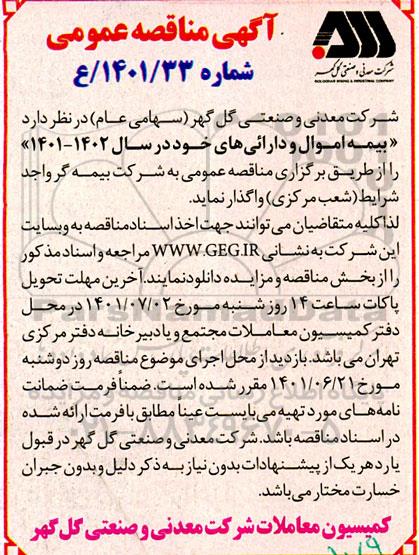 آگهی مناقصه عمومی
شماره ۱۴۰۱/۳۳/ع
شرکت معدنی و صنعتی گل گهر
GOLGOHAR MINING & INDUSTRIAL COMPANY
شرکت معدنی و صنعتی گل گهر (سهامی عام) در نظر دارد
«بیمه اموال و دارائی های خود در سال ۱۴۰۲-۱۴۰۱»
را از طریق برگزاری مناقصه عمومی به شرکت بیمه گر واجد
شرایط (شعب مرکزی) واگذار نماید.
لذا کلیه متقاضیان می توانند جهت اخذ اسناد مناقصه به وبسایت
این شرکت به نشانی WWW.GEG.IR مراجعه و اسناد مذکور
را از بخش مناقصه و مزایده دانلود نمایند. آخرین مهلت تحویل
پاکات ساعت ۱۴ روز شنبه مورخ ۱۴۰۱/۰۷/۰۲ در محل
دفتر کمیسیون معاملات مجتمع و یا دبیرخانه دفتر مرکزی
تهران می باشد. بازدید از محل اجرای موضوع مناقصه روز دوشنبه
مورخ ۱۴۰۱/۰۶/۲۱ مقرر شده است. ضمناً فرمت ضمانت
نامه های مورد تهیه می بایست عیناً مطابق با فرمت ارائه شده
در اسناد مناقصه باشد. شرکت معدنی و صنعتی گل گهر در قبول
یا رد هر یک از پیشنهادات بدون نیاز به ذکر دلیل و بدون جبران
خسارت مختار می باشد.
کمیسیون معاملات شرکت معدنی و صنعتی گل گهر